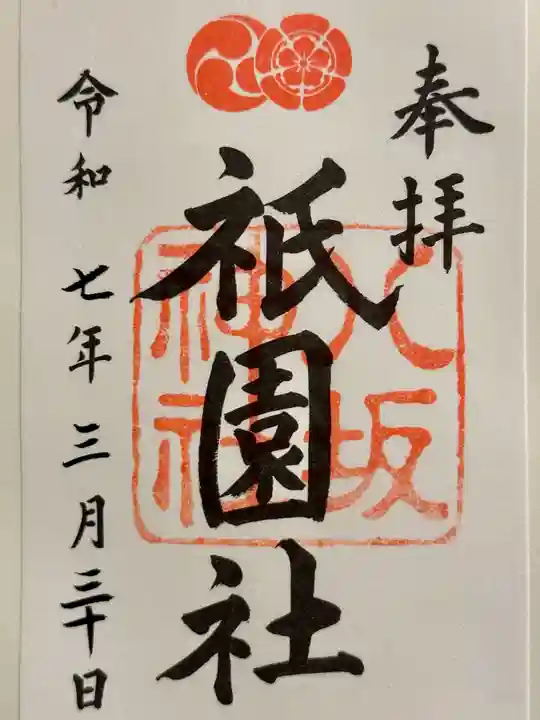 奉拝
八坂
神社
祇園社
令和 七年 三月 三十日